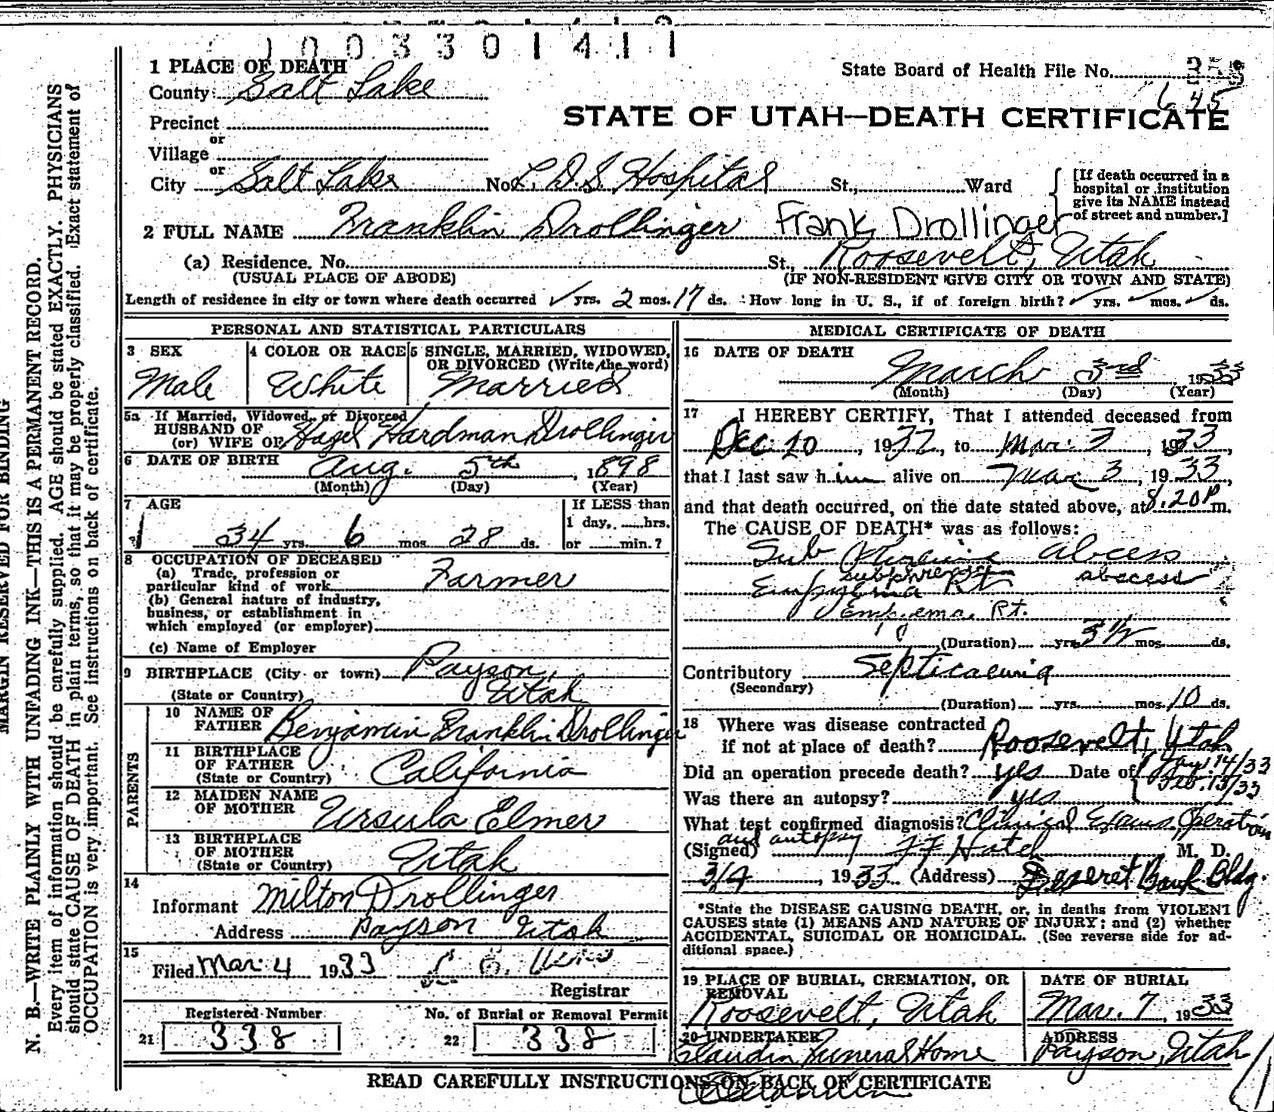 1003301411
1 PLACE OF DEATH
County Salt Lake
State Board of Health File No.
645
STATE OF UTAH—DEATH CERTIFICATE
Precinct
or
Village
or
City Salt Lake No. L.D.S. Hospital St., Ward
[If death occurred in a hospital or institution give its NAME instead of street and number.]
2 FULL NAME Franklin Drollinger Frank Drollinger
(a) Residence. No. St., Roosevelt, Utah
(USUAL PLACE OF ABODE) (IF NON-RESIDENT GIVE CITY OR TOWN AND STATE)
Length of residence in city or town where death occurred ✓ yrs. 2 mos. 17 ds. How long in U. S., if of foreign birth? ✓ yrs. ✓ mos. ✓ ds.
PERSONAL AND STATISTICAL PARTICULARS
3 SEX
Male
4 COLOR OR RACE
White
5 SINGLE, MARRIED, WIDOWED, OR DIVORCED (Write the word)
Married
5a If Married, Widowed, or Divorced
HUSBAND OF
(or) WIFE OF Hazel Hardman Drollinger
6 DATE OF BIRTH Aug. 5th, 1898
(Month) (Day) (Year)
7 AGE
34 yrs. 6 mos. 28 ds.
If LESS than
1 day, hrs.
or min.?
8 OCCUPATION OF DECEASED
(a) Trade, profession or
particular kind of work Farmer
(b) General nature of industry,
business, or establishment in
which employed (or employer)
(c) Name of Employer
9 BIRTHPLACE (City or town) Payson,
(State or Country) Utah
PARENTS
10 NAME OF
FATHER Benjamin Franklin Drollinger
11 BIRTHPLACE
OF FATHER
(State or Country) California
12 MAIDEN NAME
OF MOTHER Ursula Elmer
13 BIRTHPLACE
OF MOTHER
(State or Country) Utah
14
Informant Milton Drollinger
Address Payson Utah
15
Filed Mar. 4 1933
Registrar
Registered Number
21 338
No. of Burial or Removal Permit
22 338
MEDICAL CERTIFICATE OF DEATH
16 DATE OF DEATH
March 3rd 1933
(Month) (Day) (Year)
17 I HEREBY CERTIFY, That I attended deceased from
Dec. 20, 1932, to Mar. 3, 1933
that I last saw him alive on Mar 3, 1933,
and that death occurred, on the date stated above, at 8.20 P m.
The CAUSE OF DEATH* was as follows:
Sub Phrenic abcess
subphrenic abscess
Empyema Rt
Empyema, Rt.
(Duration) yrs. 3 1/2 mos. ds.
Contributory Septicaemia
(Secondary)
(Duration) yrs. mos. 10 ds.
18 Where was disease contracted
if not at place of death? Roosevelt, Utah
Did an operation precede death? yes Date of Jan 14/33
Feb. 13/33
Was there an autopsy? yes
What test confirmed diagnosis? Clinical Exam, Operation
and autopsy
(Signed) M. D.
3/4, 1933 (Address) Deseret Bank Bldg.
*State the DISEASE CAUSING DEATH, or, in deaths from VIOLENT
CAUSES state (1) MEANS AND NATURE OF INJURY; and (2) whether
ACCIDENTAL, SUICIDAL OR HOMICIDAL. (See reverse side for additional space.)
19 PLACE OF BURIAL, CREMATION, OR
REMOVAL
Roosevelt, Utah
DATE OF BURIAL
Mar. 7, 1933
20 UNDERTAKER
Claudin Funeral Home
ADDRESS
Payson, Utah
READ CAREFULLY INSTRUCTIONS ON BACK OF CERTIFICATE
MARGIN RESERVED FOR BINDING
N. B.—WRITE PLAINLY WITH UNFADING INK—THIS IS A PERMANENT RECORD.
Every item of information should be carefully supplied. AGE should be stated EXACTLY. PHYSICIANS
should state CAUSE OF DEATH in plain terms, so that it may be properly classified. Exact statement of
OCCUPATION is very important. See instructions on back of certificate.